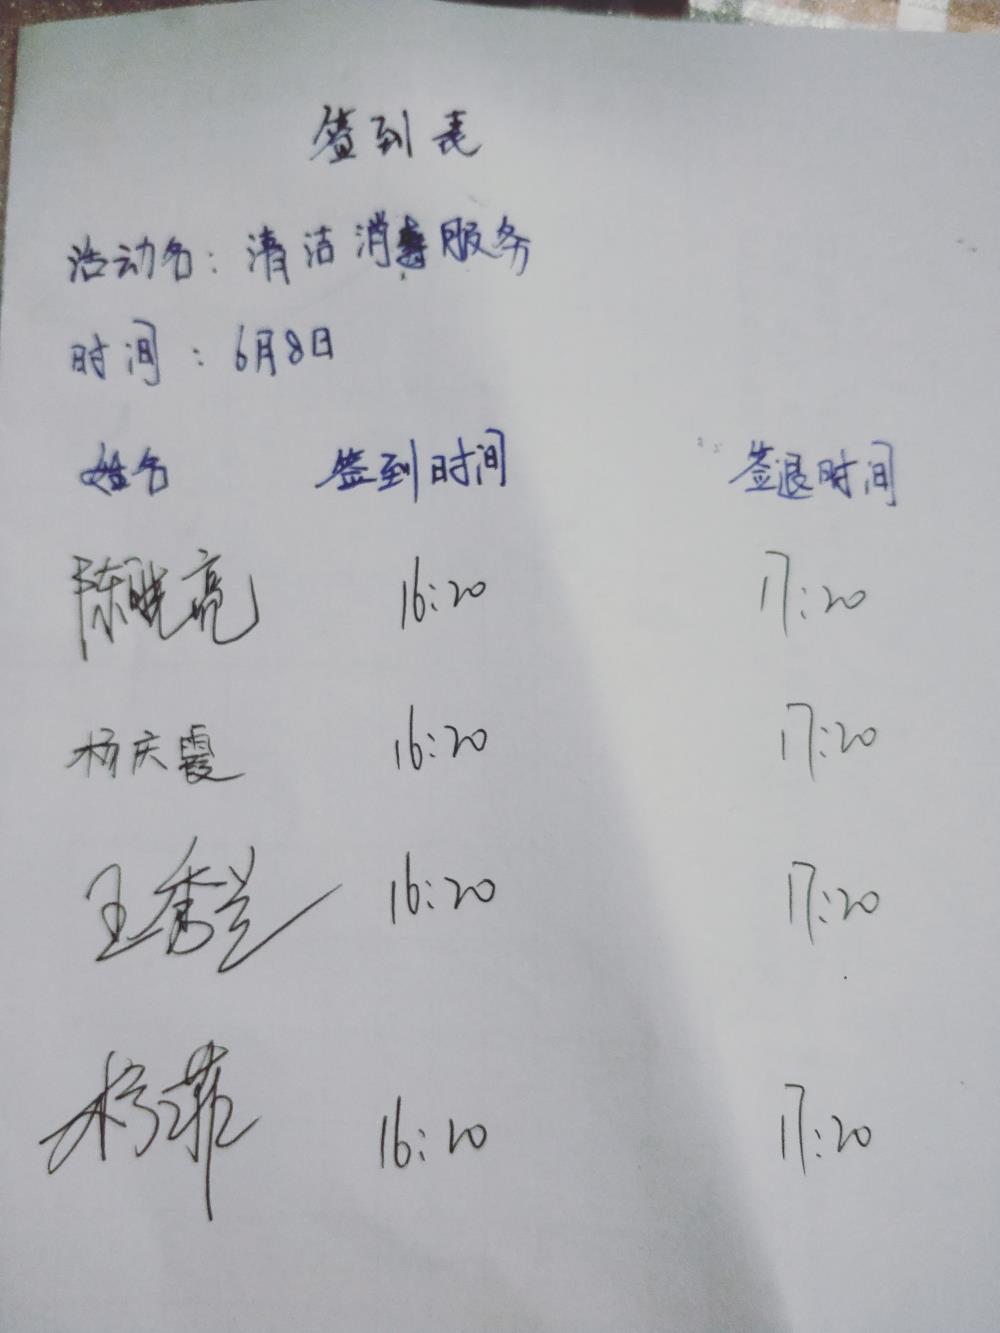 签到表
活动名：清洁消毒服务
时间：6月8日
姓名 签到时间 签退时间
陈晓亮 16:20 17:20
杨庆霞 16:20 17:20
王秀兰 16:20 17:20
杨菲 16:20 17:20